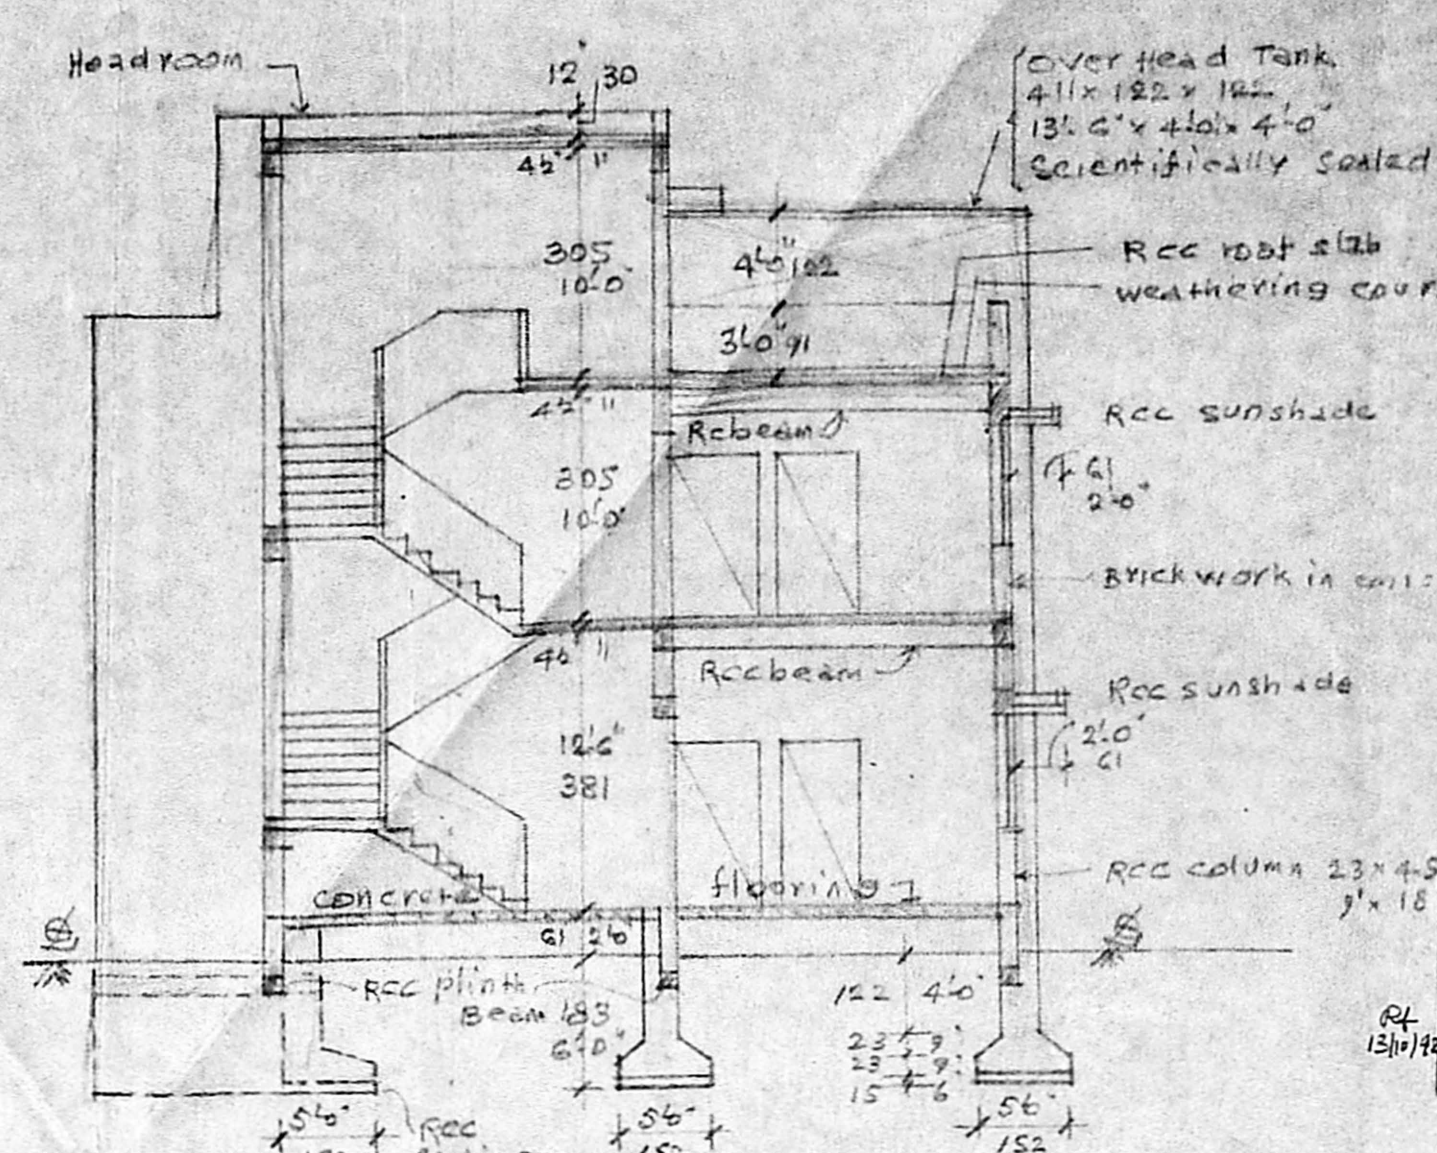 Headroom
12" 30
4½" 11
Over Head Tank.
411 x 122 x 122
13'-6" x 4'-0" x 4'-0"
Scientifically Sealed
305
10'-0"
4'-0" 122
RCC roof slab
weathering cour
3'-0" 91
4½" 11
Rcbeam
RCC sunshade
61
2'-0"
305
10'-0"
Brickwork in
4½ 11
Rccbeam
Rcc sunshade
2'-0"
61
12'-6"
381
concrete
flooring
RCC column 23 x 45
9" x 18
61 2'-0"
RCC plinth
Beam
183
6'-0"
122 4'-0"
23 9"
23 9"
15 6
13/10/92
5'-0"
5'-0"
5'-0"
152
RCC